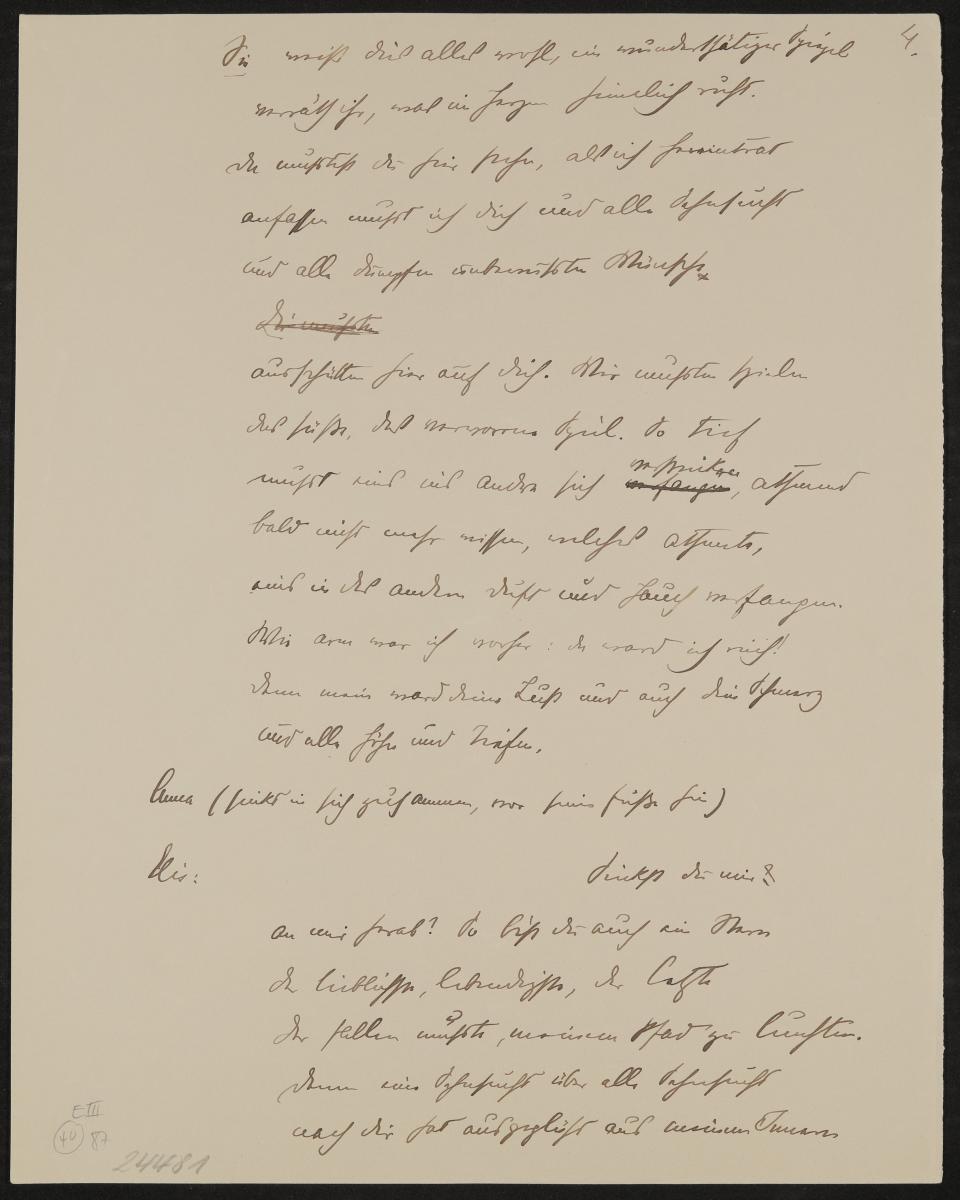 4.
Sie weiß dies alles wohl, ein wunderthätiger Spiegel
verräth ihr, was im Herzen heimlich ruht.
du mußtest da hier stehn, als ich hereintrat
anfassen mußt ich dich und alle Sehnsucht
und alle dumpfen unbewußten Wünsche
Wir mußten
ausschütten hier auf dich. Wir mußten spielen
das süße, das verworrene Spiel. So tief
verstricken
mußt eins ins andre sich verfangen, athmend
bald nicht mehr wissen, welches athmete,
eins in des andern Duft und Hauch verfangen.
Wie arm war ich vorher: da ward ich reich!
denn mein ward deine Lust und auch dein Schmerz
und alle Höhn und Tiefen.
Anna (sinkt in sich zusammen, vor seine Füße hin)
Elis:
Sinkst du mir
an mir herab? So bist du auch ein Stern
der lieblichste, lebendigste, der letzte
der fallen mußte, meinem Pfad zu leuchten.
denn eine Sehnsucht über alle Sehnsucht
nach dir hat ausgeglüht aus meinem Innern
E III
40
87
24481